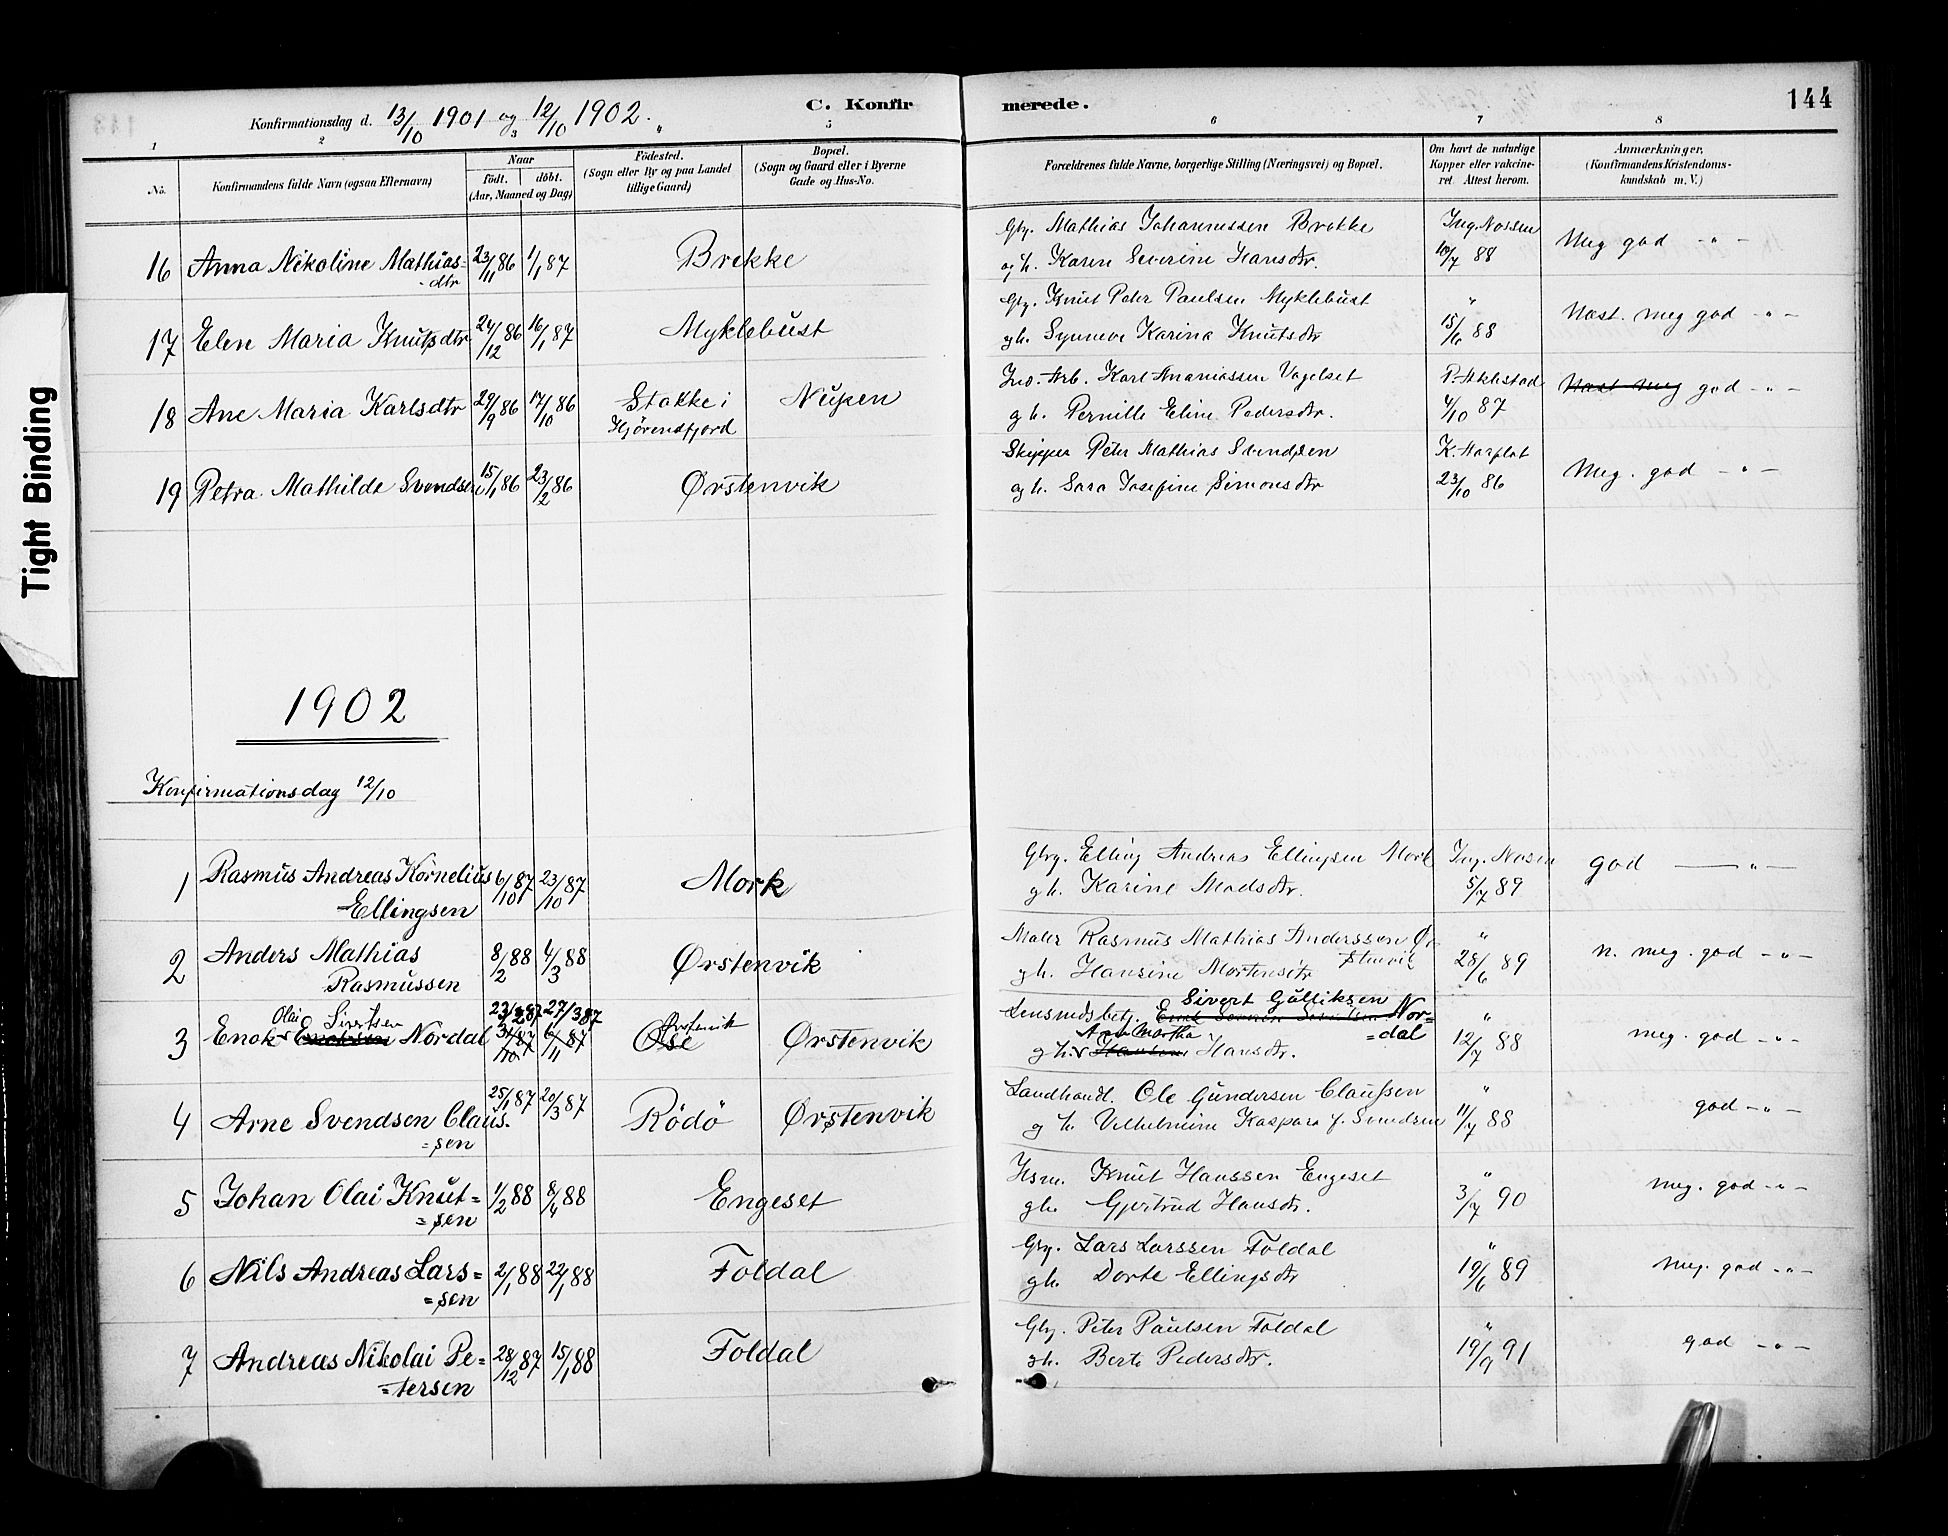 Konfirmationsdag d. 13/10 1901 og 12/10 1902.
C. Konfirmerede.
144
Tight Binding
1
2
3
5
6
7
8
No.
Konfirmandens fulde Navn (ogsaa Efternavn)
Naar
födt. döbt.
(Aar, Maaned og Dag)
Födested.
(Sogn eller By og paa Landet
tillige Gaard)
Bopæl.
(Sogn og Gaard eller i Byerne
Gade og Hus-No.
Forældrenes fulde Navne, borgerlige Stilling (Næringsvei) og Bopæl.
Om havt de naturlige
Kopper eller vakcine-
ret. Attest herom.
Anmærkninger,
(Konfirmandens Kristendoms-
kundskab m. V.)
16 Anna Nikoline Mathias- 23/11 86 1/1 87 Brekke Gbr. Mathias Johannessen Brekke Ing. Nossen Meg god - " -
- dtr og h. Karen Severine Hansdtr. 10/7 88
17 Elen Maria Knutsdtr 24/12 86 16/1 87 Myklebust Gbr. Knut Peter Paulsen Myklebust " Næst. meg god - " -
g h. Synneve Karina Knutsdtr 15/6 88
18 Ane Maria Karlsdtr 29/9 86 17/10 86 Stokke i Nupen Ind. Arb. Karl Ananiassen Vagelset P. Aklestad Næst meg god - " -
Hjörendfjord g h. Pernille Eline Pedersdtr. 4/10 87
19 Petra Mathilde Svendsen 15/1 86 23/2 86 Ørstenvik Skipper Peter Mathias Svendsen K. Aarflot Meg. god - " -
og h. Sara Josefine Simonsdtr 23/10 86
1902
Konfirmationsdag 12/10
1 Rasmus Andreas Kornelius 6/10 87 23/10 87 Mork Gbrg. Elling Andreas Ellingsen Mork Ing. Nosen god - " -
Ellingsen g h. Karine Madsdtr. 5/7 89
2 Anders Mathias 8/2 88 4/3 88 Ørstenvik Maler Rasmus Mathias Anderssen Ør- " n. meg. god - " -
Rasmussen g h. Hansine Mortensdtr stenvik 28/6 89
Olai Sivertsen 23/2 87 27/3 87 Ørstenvik Sivert Gulliksen
3 Enok Enoksen Nordal 31/10 87 6/11 87 Ose Ørstenvik Lensmdsbetj. Nor- " meg. god - " -
Ane Martha =dal
g h. Hansine Hansdtr. 12/7 88
4 Arne Svendsen Claus- 25/1 87 20/3 87 Rödö Ørstenvik Landhandl. Ole Gundersen Claussen " god - " -
=sen g h. Vilhelmine Kaspara f. Svendsen 11/7 88
5 Johan Olai Knut= 1/2 88 8/4 88 Engeset Hsm. Knut Hanssen Engeset " meg. god - " -
=sen gh. Gjertrud Hansdtr. 3/7 90
6 Nils Andreas Lars= 2/1 88 22/1 88 Foldal Gbr. Lars Larssen Foldal " meg. god - " -
=sen gh. Dorte Ellingsdtr 19/6 89
7 Andreas Nikolai Pe= 28/12 87 15/1 88 Foldal Gbr. Peter Paulsen Foldal " god - " -
=tersen gh. Berte Pedersdtr. 19/9 91